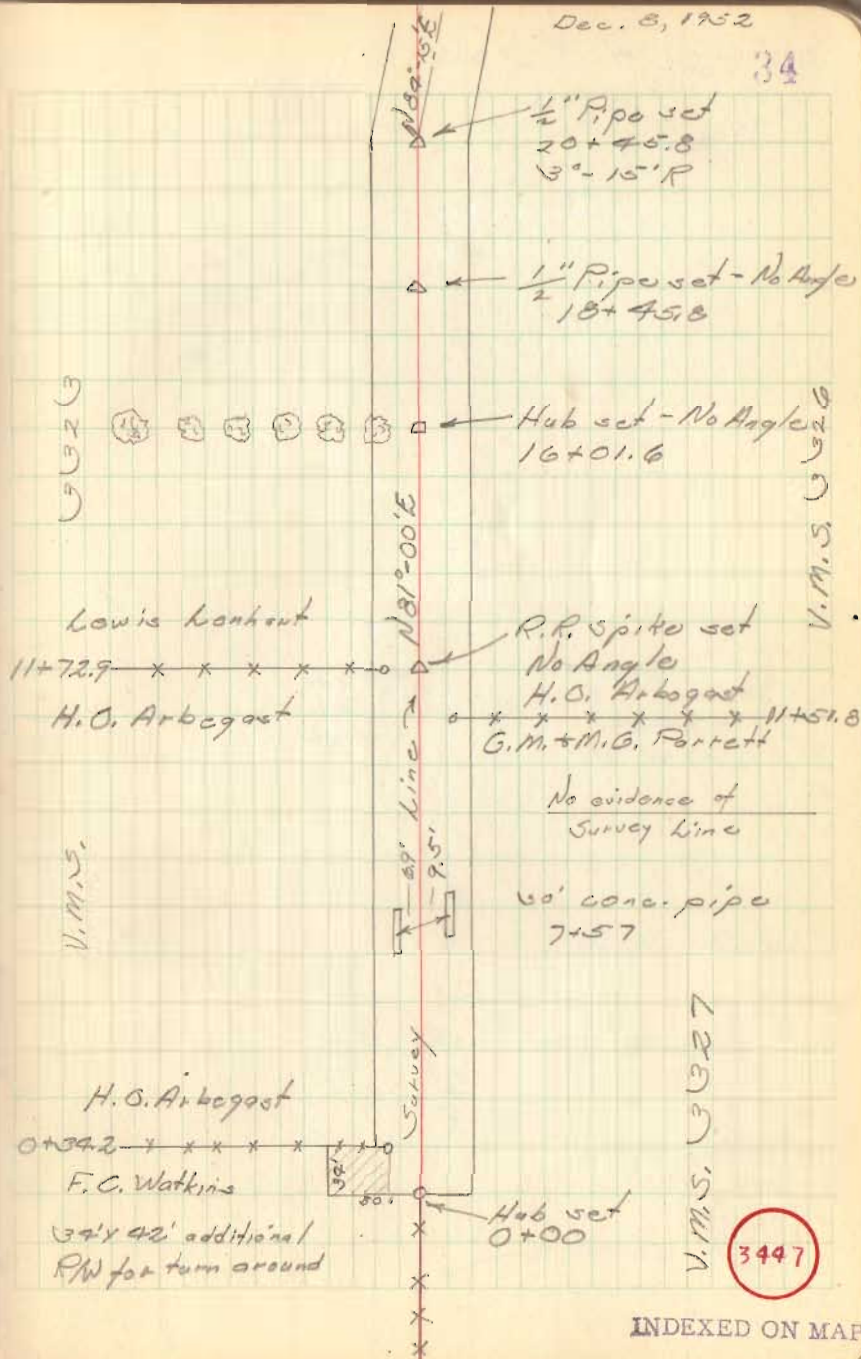 Dec. 8, 1952
34
N84°-15'E
1/2" Pipe set
20+45.8
3°-15'R
1/2" Pipe set - No Angle
18+45.8
3323
Hub set - No Angle
16+01.6
V.M.S. 3326
N81°-00'E
Lewis Lenhart
11+72.9
H.O. Arbogast
R.R. Spike set
No Angle
H.O. Arbogast
11+51.8
G.M. & M.G. Parrett
Line
No evidence of
Survey Line
9.5'
30' conc. pipe
7+57
V.M.S.
Survey
V.M.S. 3327
H.O. Arbogast
0+34.2
F.C. Watkins
34'
Hub set
0+00
34'x 42' additional
R/W for turn around
3447
INDEXED ON MAP